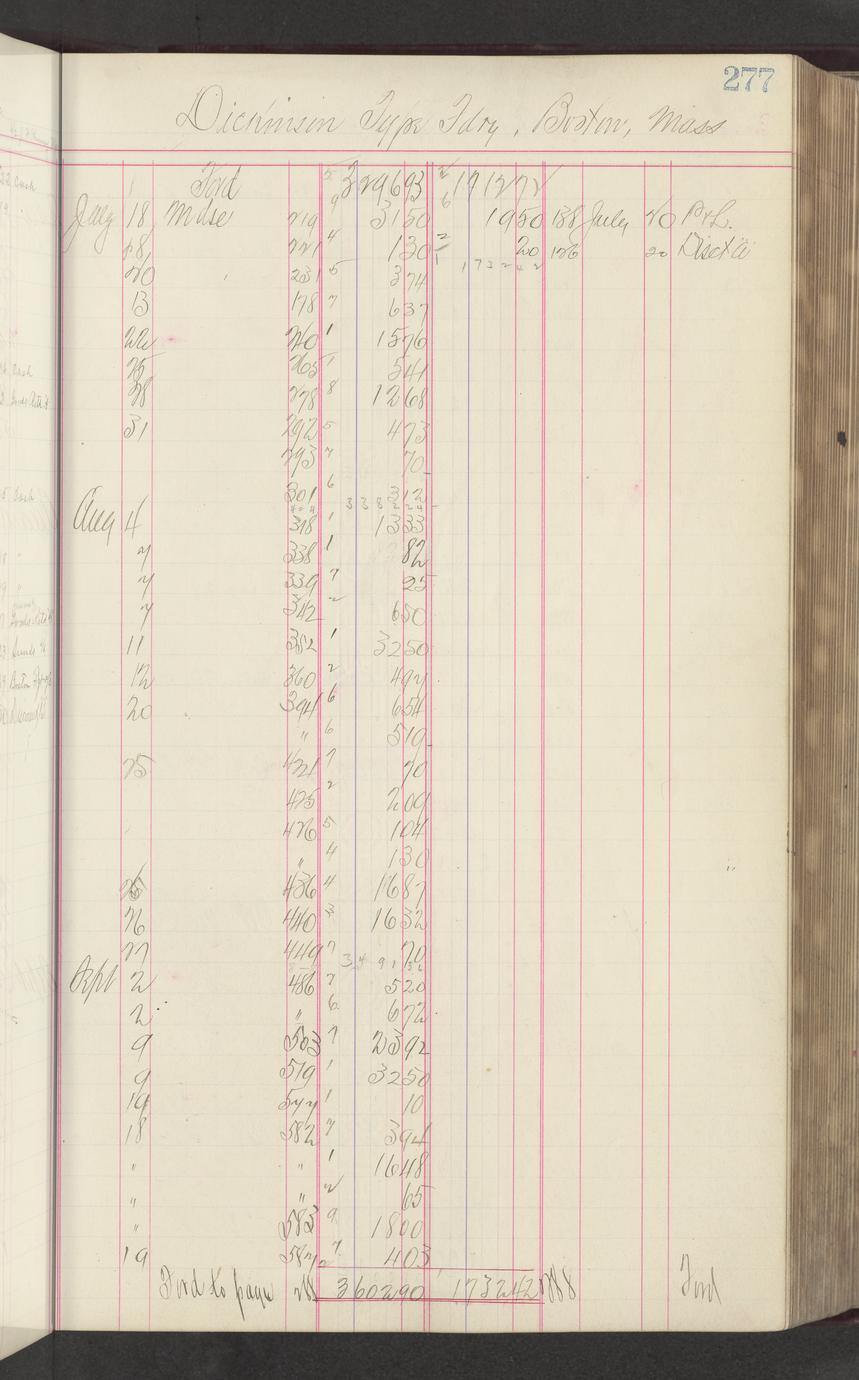 277
Dickinson Type Fdry, Boston, Mass
Ford 5 329693 171272
July 18 Mdse 219 9 3150 6 1950 138 July 20 P&L.
18 221 4 130 20 126 20 Disct a/c
20 231 5 374 173242
13 178 7 637
22 240 1 1576
25 265 1 541
28 278 8 1268
31 292 5 473
293 7 70
301 6 312
Aug 4 318 1 1333
7 338 1 82
7 339 7 25
7 342 2 650
11 352 1 3250
12 360 2 492
20 394 6 654
" 6 519
25 421 7 70
425 2 209
426 5 104
" 4 130
436 4 1687
26 440 3 1632
27 449 7 70
Sept 2 486 7 520
2 " 6 672
9 503 7 2392
9 519 1 3250
19 577 1 10
18 582 7 394
" " 1 1648
" " 2 65
" 583 9 1800
19 587 7 403
Ford to page 288 360290 173242 288 Ford